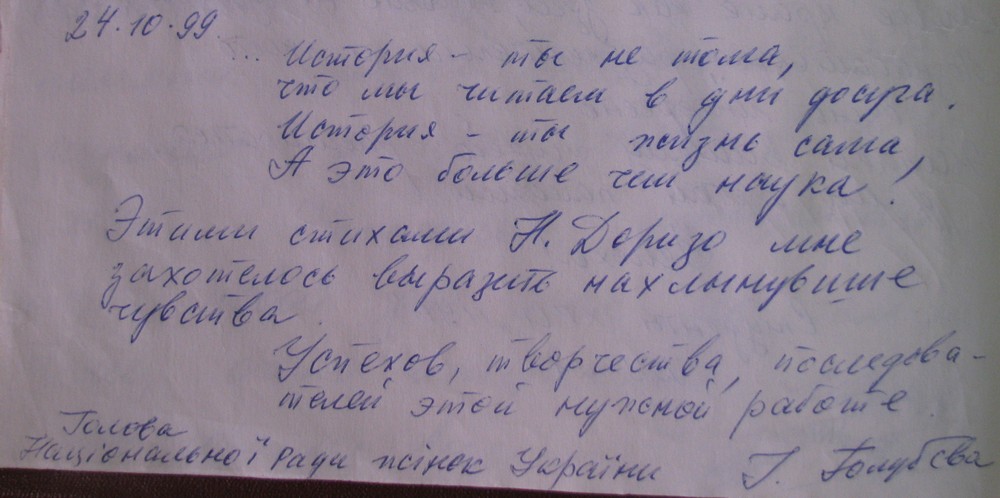 24.10.99
... История - ты не тома,
что мы читаем в дни досуга.
История - ты жизнь сама,
А это больше чем наука!
Этими стихами Н. Доризо мне
захотелось выразить нахлынувшие
чувства.
Успехов, творчества, последова-
телей этой нужной работе.
Голова
Національної ради жінок України І. Голубєва